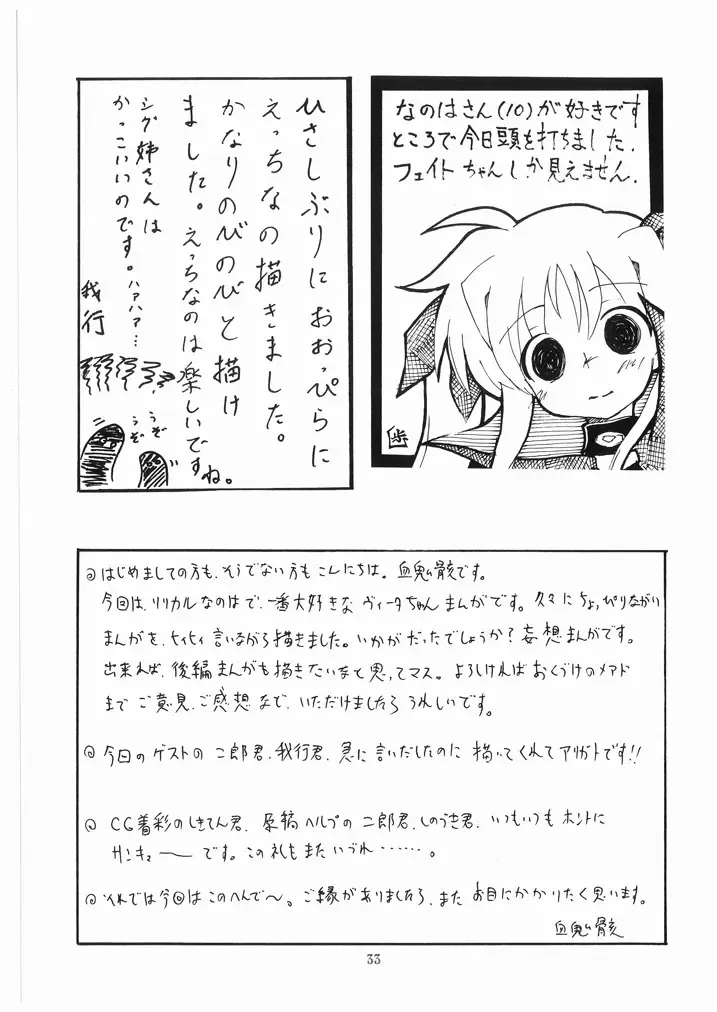 なのはさん(10)が好きです
ところで今日頭を打ちました.
フェイトちゃんしか見えません.
歩
ひさしぶりにおおっぴらに
えっちなの描きました。
かなりのびのびと描け
ました。えっちなのは楽しいですね。
シグ姉さんは
かっこいいのです。ハアハア…
我行
うぞ
うぞ
◎はじめましての方も、そうでない方もこんにちは。血鬼骸です。
今回は、リリカルなのはで、一番大好きなヴィータちゃんまんがです。久々にちょっぴりながい
まんがを、ヒィヒィ言いながら描きました。いかがだったでしょうか?妄想まんがです。
出来れば、後編まんがも描きたいなと思ってマス。よろしければおくづけのメアド
までご意見、ご感想など、いただけましたらうれしいです。
◎今回のゲストの二郎君、我行君、急に言いだしたのに描いてくれてアリガトです!!
◎CG着彩のしきてん君、原稿ヘルプの二郎君、しのうき君、いつもいつもホントに
サンキューーです。この礼もまたいづれ……。
◎それでは今回はこのへんで〜。ご縁がありましたら、またお目にかかりたく思います。
血鬼骸
33